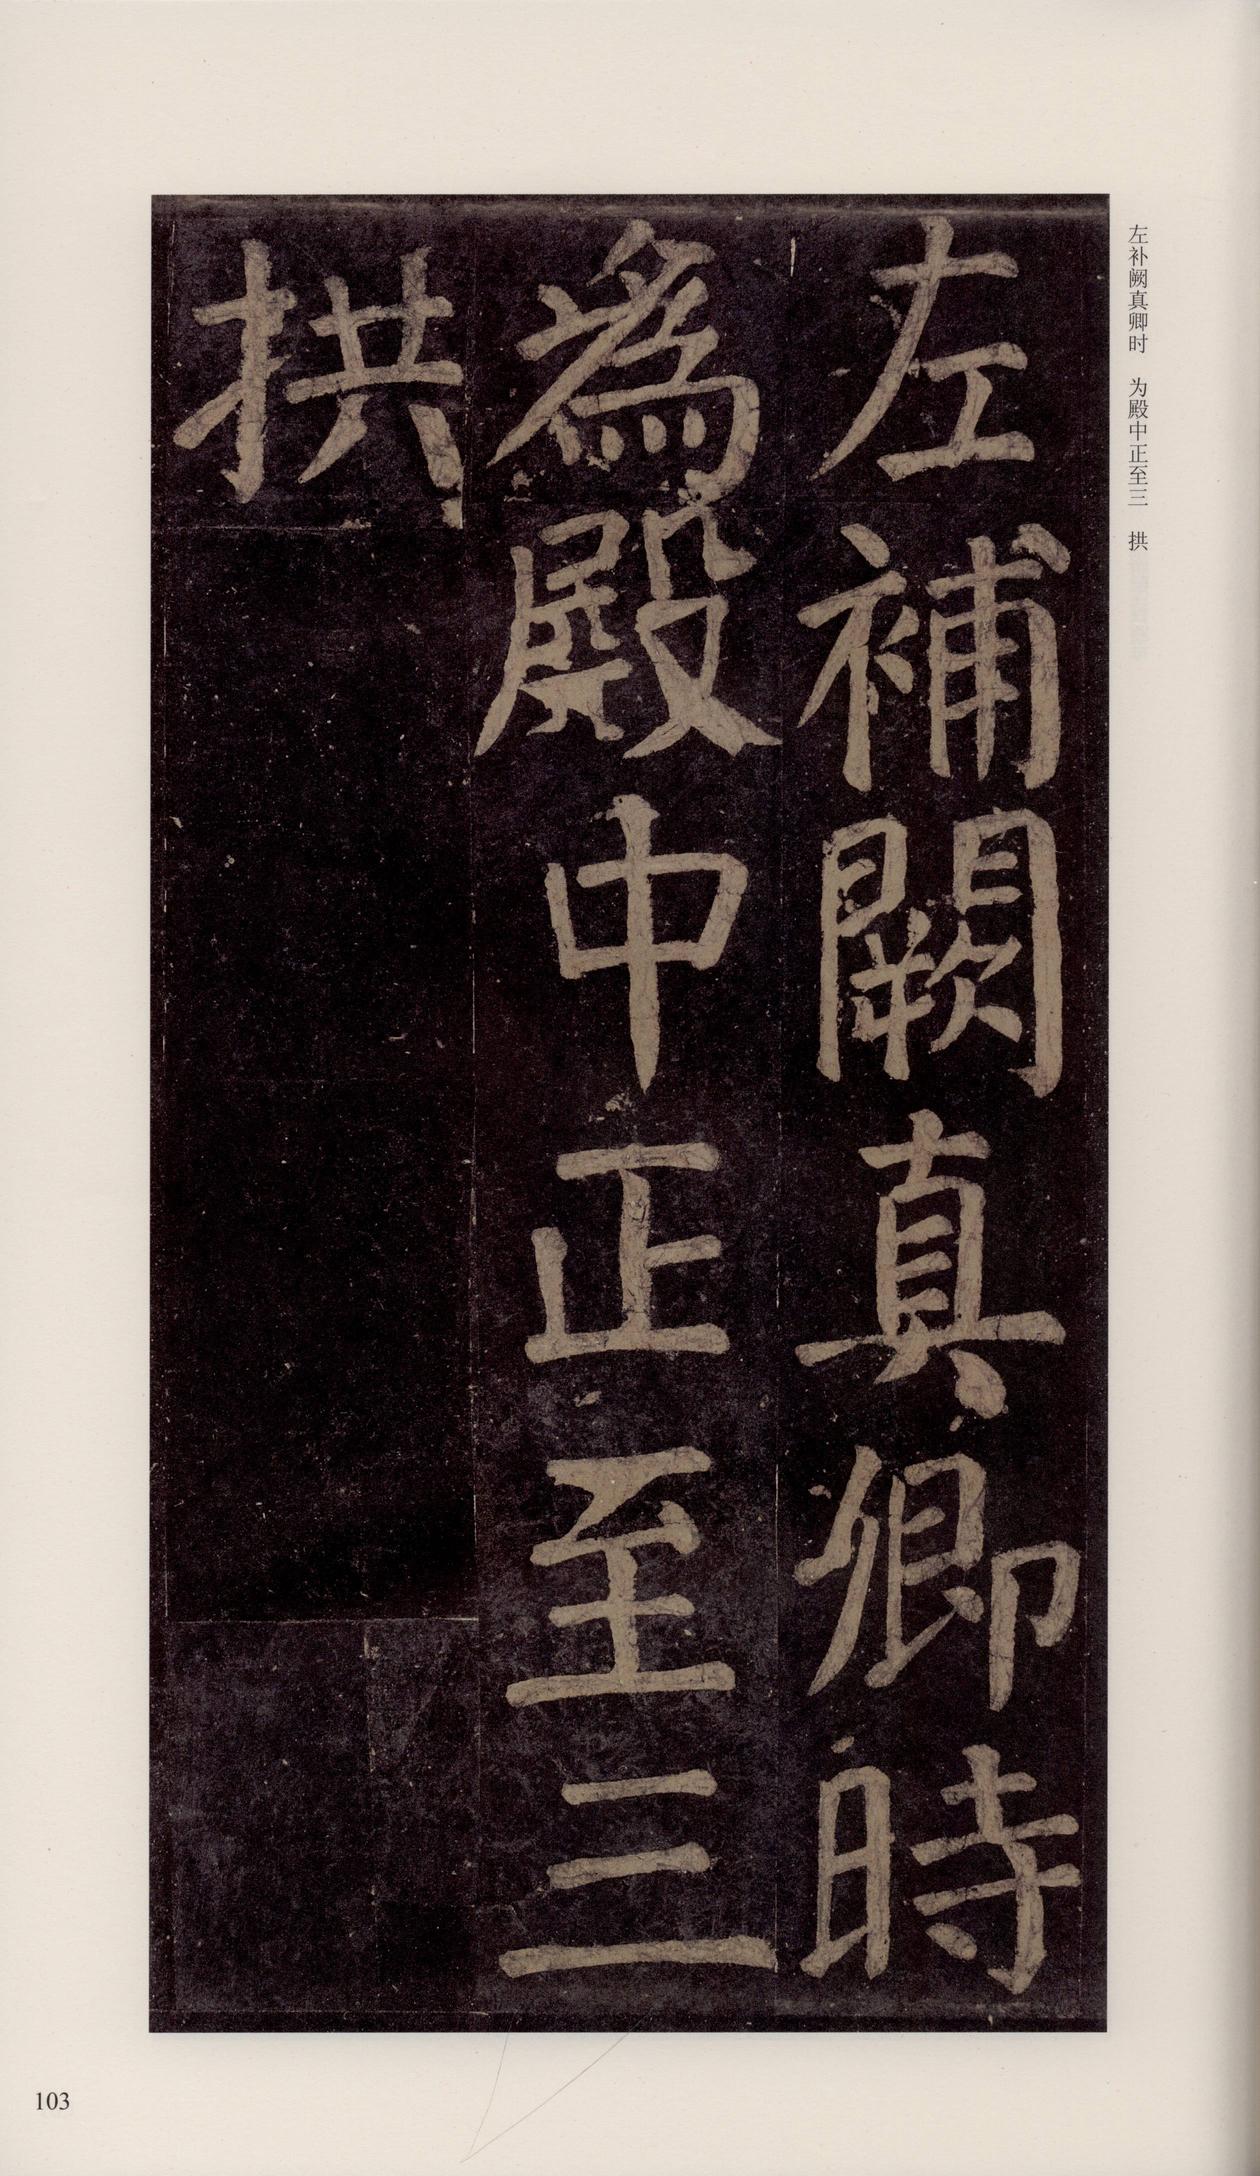 左補闕真卿時
為殿中正至三
拱
左补阙真卿时　为殿中正至三　拱
103